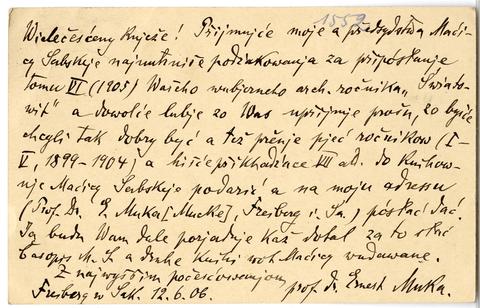 1559
Wielečesćeny knježe! Přijmujće moje a předsydstwa Maći-
cy Serbskeje najnutniše podźakowanja za připósłanje
tomu VI (1905) Wašeho wubjerneho arch. ročnika „Swiato-
wit" a dowolće lubje zo Was upřijmje prošu, zo byšće
chcyli tak dobry być a też prěnje pjeć ročnikow (I-
V, 1899-1904) a hišće přikhadźace VII atd. do knihow-
nje Maćicy Serbskeje podarić a na moju adressu
(Prof. Dr. E. Muka [Mucke], Freiberg i. Sa.) póstać dać.
Ja budu Wam dale porjadnje kaž dotal za to słać
Časopis M. S. a druhe knihi wot Maćicy wudawane.
Z najwyššim počesćowanjom
Freiberg w Sak. 12.6.06. prof. Dr. Ernest Muka.